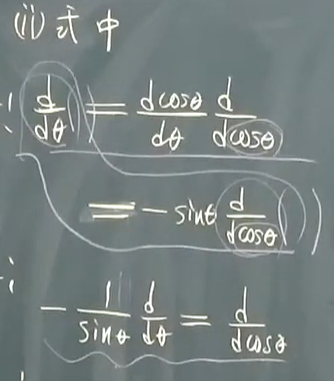 (ii) 式中
d/dθ = dcosθ/dθ d/dcosθ
= - sinθ d/dcosθ
- 1/sinθ d/dθ = d/dcosθ